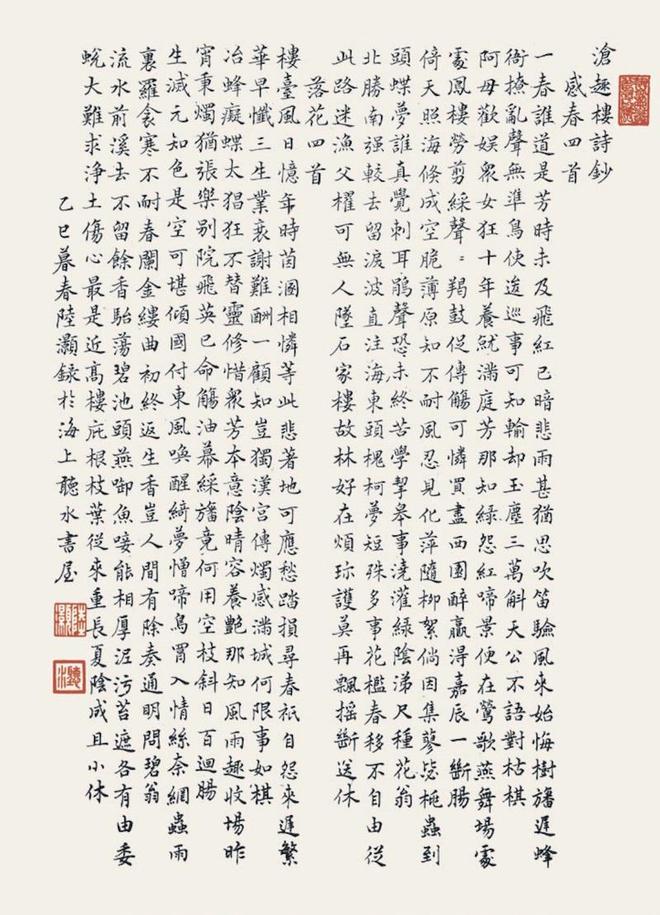 滄趣樓詩鈔
感春四首
一春誰道是芳時未及飛紅已暗悲雨甚猶思吹笛驗風來始悔樹旛遲蜂
衙撩亂聲無準鳥使逡巡事可知輸却玉塵三萬斛天公不語對枯棋
阿母歡娛衆女狂十年養就滿庭芳那知綠怨紅啼景便在鶯歌燕舞場處
處鳳樓勞剪綵聲〻羯鼓促傳觴可憐買盡西園醉贏得嘉辰一斷腸
倚天照海倏成空脆薄原知不耐風忍見化萍隨柳絮倘因集蓼毖桃蟲到
頭蝶夢誰真覺刺耳鵑聲恐未終苦學挈皋事澆灌綠陰涕尺種花翁
北勝南强較去留淚波直注海東頭槐柯夢短殊多事花檻春移不自由從
此路迷漁父櫂可無人墜石家樓故林好在煩珎護莫再飄搖斷送休
落花四首
樓臺風日憶年時茵溷相憐等此悲著地可應愁踏損尋春衹自怨來遲繁
華早懺三生業衰謝難酬一顧知豈獨漢宮傳燭感滿城何限事如棋
冶蜂癡蝶太猖狂不替靈修惜衆芳本意陰晴容養艷那知風雨趣收場昨
宵秉燭猶張樂別院飛英已命觴油幕綵旛竟何用空枝斜日百迴腸
生滅元知色是空可堪傾國付東風喚醒綺夢憎啼鳥罥入情絲奈網蟲雨
裏羅衾寒不耐春闌金縷曲初終返生香豈人間有除奏通明問碧翁
流水前溪去不留餘香駘蕩碧池頭燕啣魚唼能相厚泥污苔遮各有由委
蛻大難求淨土傷心最是近高樓庇根枝葉從來重長夏陰成且小休
乙巳暮春陸灝録於海上聽水書屋